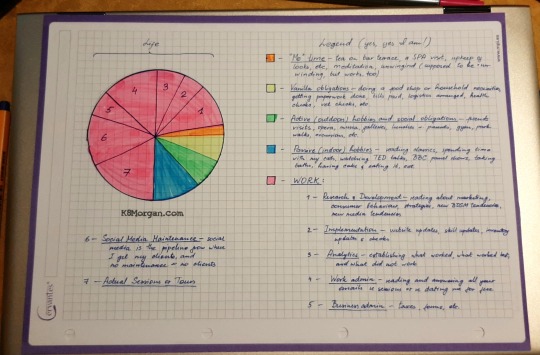 Life
Legend (yes, yes I am!)
"Me" time - tea on bar terrace, a SPA visit, upkeep of
looks, etc, meditation, unwinding (supposed to be un-
winding, but works too)
Vanilla obligations - doing a food shop or household
getting paperwork done, bills paid, logistics arranged, health
checks, vet checks, etc
Active (outdoor) hobbies and social obligations -
visits, opera, galleries, gym, park
walks, excursion, etc.
Passive (indoor) hobbies - reading classics, spending time
with my cats, watching TED talks, BBC panel shows, taking
baths, having cake & eating it, etc
- WORK:
1 - Research & Development - reading about marketing,
consumer behaviour, strategies, new BDSM tendencies,
new media tendencies
2 - Implementation - website updates, skill updates, inventory
updates & checks
3 - Analytics - establishing what worked, what worked best,
and what did not work
4 - Work admin - reading and answering all your
emails re sessions or is dating me for free
5 - Business admin - taxes, forms, etc.
6 - Social Media Maintenance - social
media is the pipeline from where
I get my clients, and
no maintenance = no clients
7 - Actual Sessions or Tours
1
2
3
4
5
6
7
KBMorgan.com
Cervantes